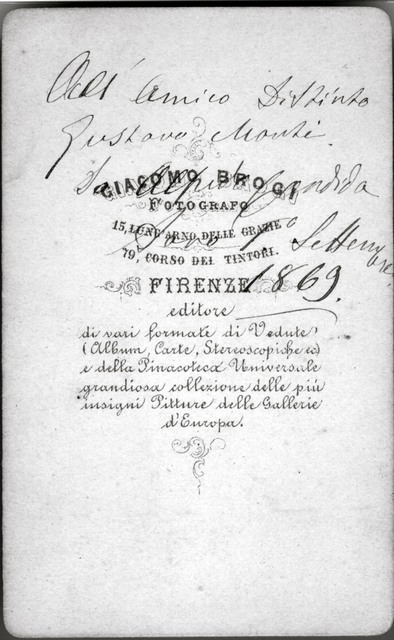 All' Amico Distinto
Gustavo Monti
GIACOMO BROGI
FOTOGRAFO
15, LUNG'ARNO DELLE GRAZIE
79, CORSO DEI TINTORI.
Settembre
FIRENZE 1869.
editore
di vari formati di Vedute
(Album, Carte, Stereoscopiche ec)
e della Pinacoteca Universale
grandiosa collezione delle più
insigni Pitture delle Gallerie
d'Europa.